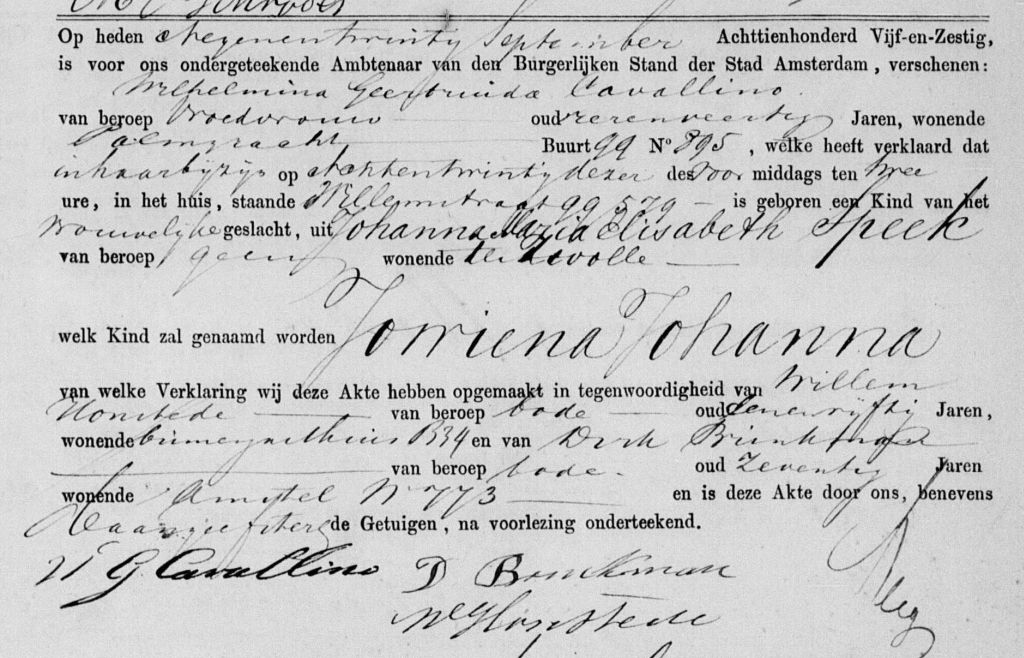 Op heden Negenentwintig September Achttienhonderd Vijf-en-Zestig,
is voor ons ondergeteekende Ambtenaar van den Burgerlijken Stand der Stad Amsterdam, verschenen:
Wilhelmina Geertruida Cavallino
van beroep Vroedvrouw oud zevenveertig Jaren, wonende
Palmgracht Buurt 99 No 895, welke heeft verklaard dat
in haar bijzijn op Achtentwintig dezer des voor middags ten twee
ure, in het huis, staande Willemstraat 99 579 is geboren een Kind van het
vrouwelijke geslacht, uit Johanna Maria Elisabeth Speek
van beroep geen wonende te Zwolle
welk Kind zal genaamd worden Jorriena Johanna
van welke Verklaring wij deze Akte hebben opgemaakt in tegenwoordigheid van Willem
Honstede van beroep bode oud Eenenvijftig Jaren,
wonende B34 en van Dirk Brinkman
van beroep bode oud Zeventig Jaren
wonende Amstel No 773 en is deze Akte door ons, benevens
de Aangeefster de Getuigen, na voorlezing onderteekend.
W G Cavallino D Brinkman
W Honstede